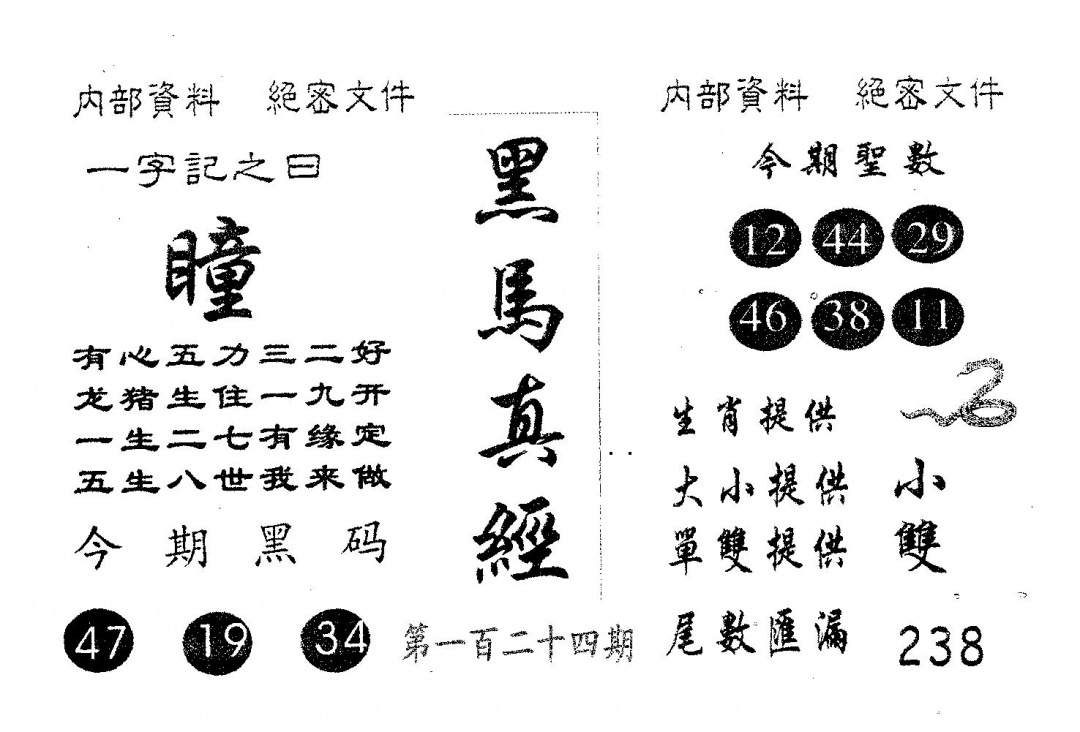 内部資料 絕密文件
一字記之曰
瞳
有心五力三二好
龙猪生住一九开
一生二七有缘定
五生八世我来做
今期黑码
47 19 34
黑馬真經
第一百二十四期
内部資料 絕密文件
今期聖數
12 44 29
46 38 11
生肖提供
大小提供 小
單雙提供 雙
尾數匯漏 238